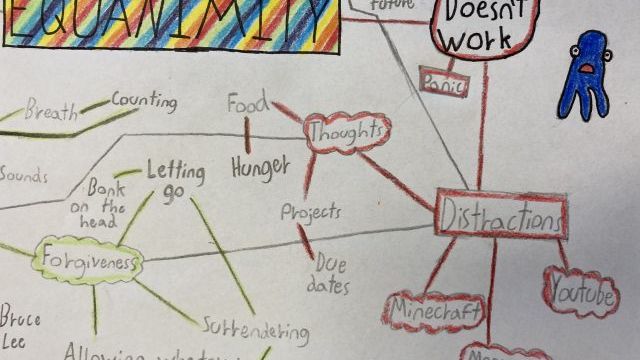 EQUANIMITY
future
Doesn't
work
Panic
Breath
Counting
Food
Thoughts
Hunger
Sounds
Bonk
on the
head
Letting
go
Projects
Distractions
Due
dates
Forgiveness
Minecraft
Youtube
Bruce
Lee
Surrendering
Allowing